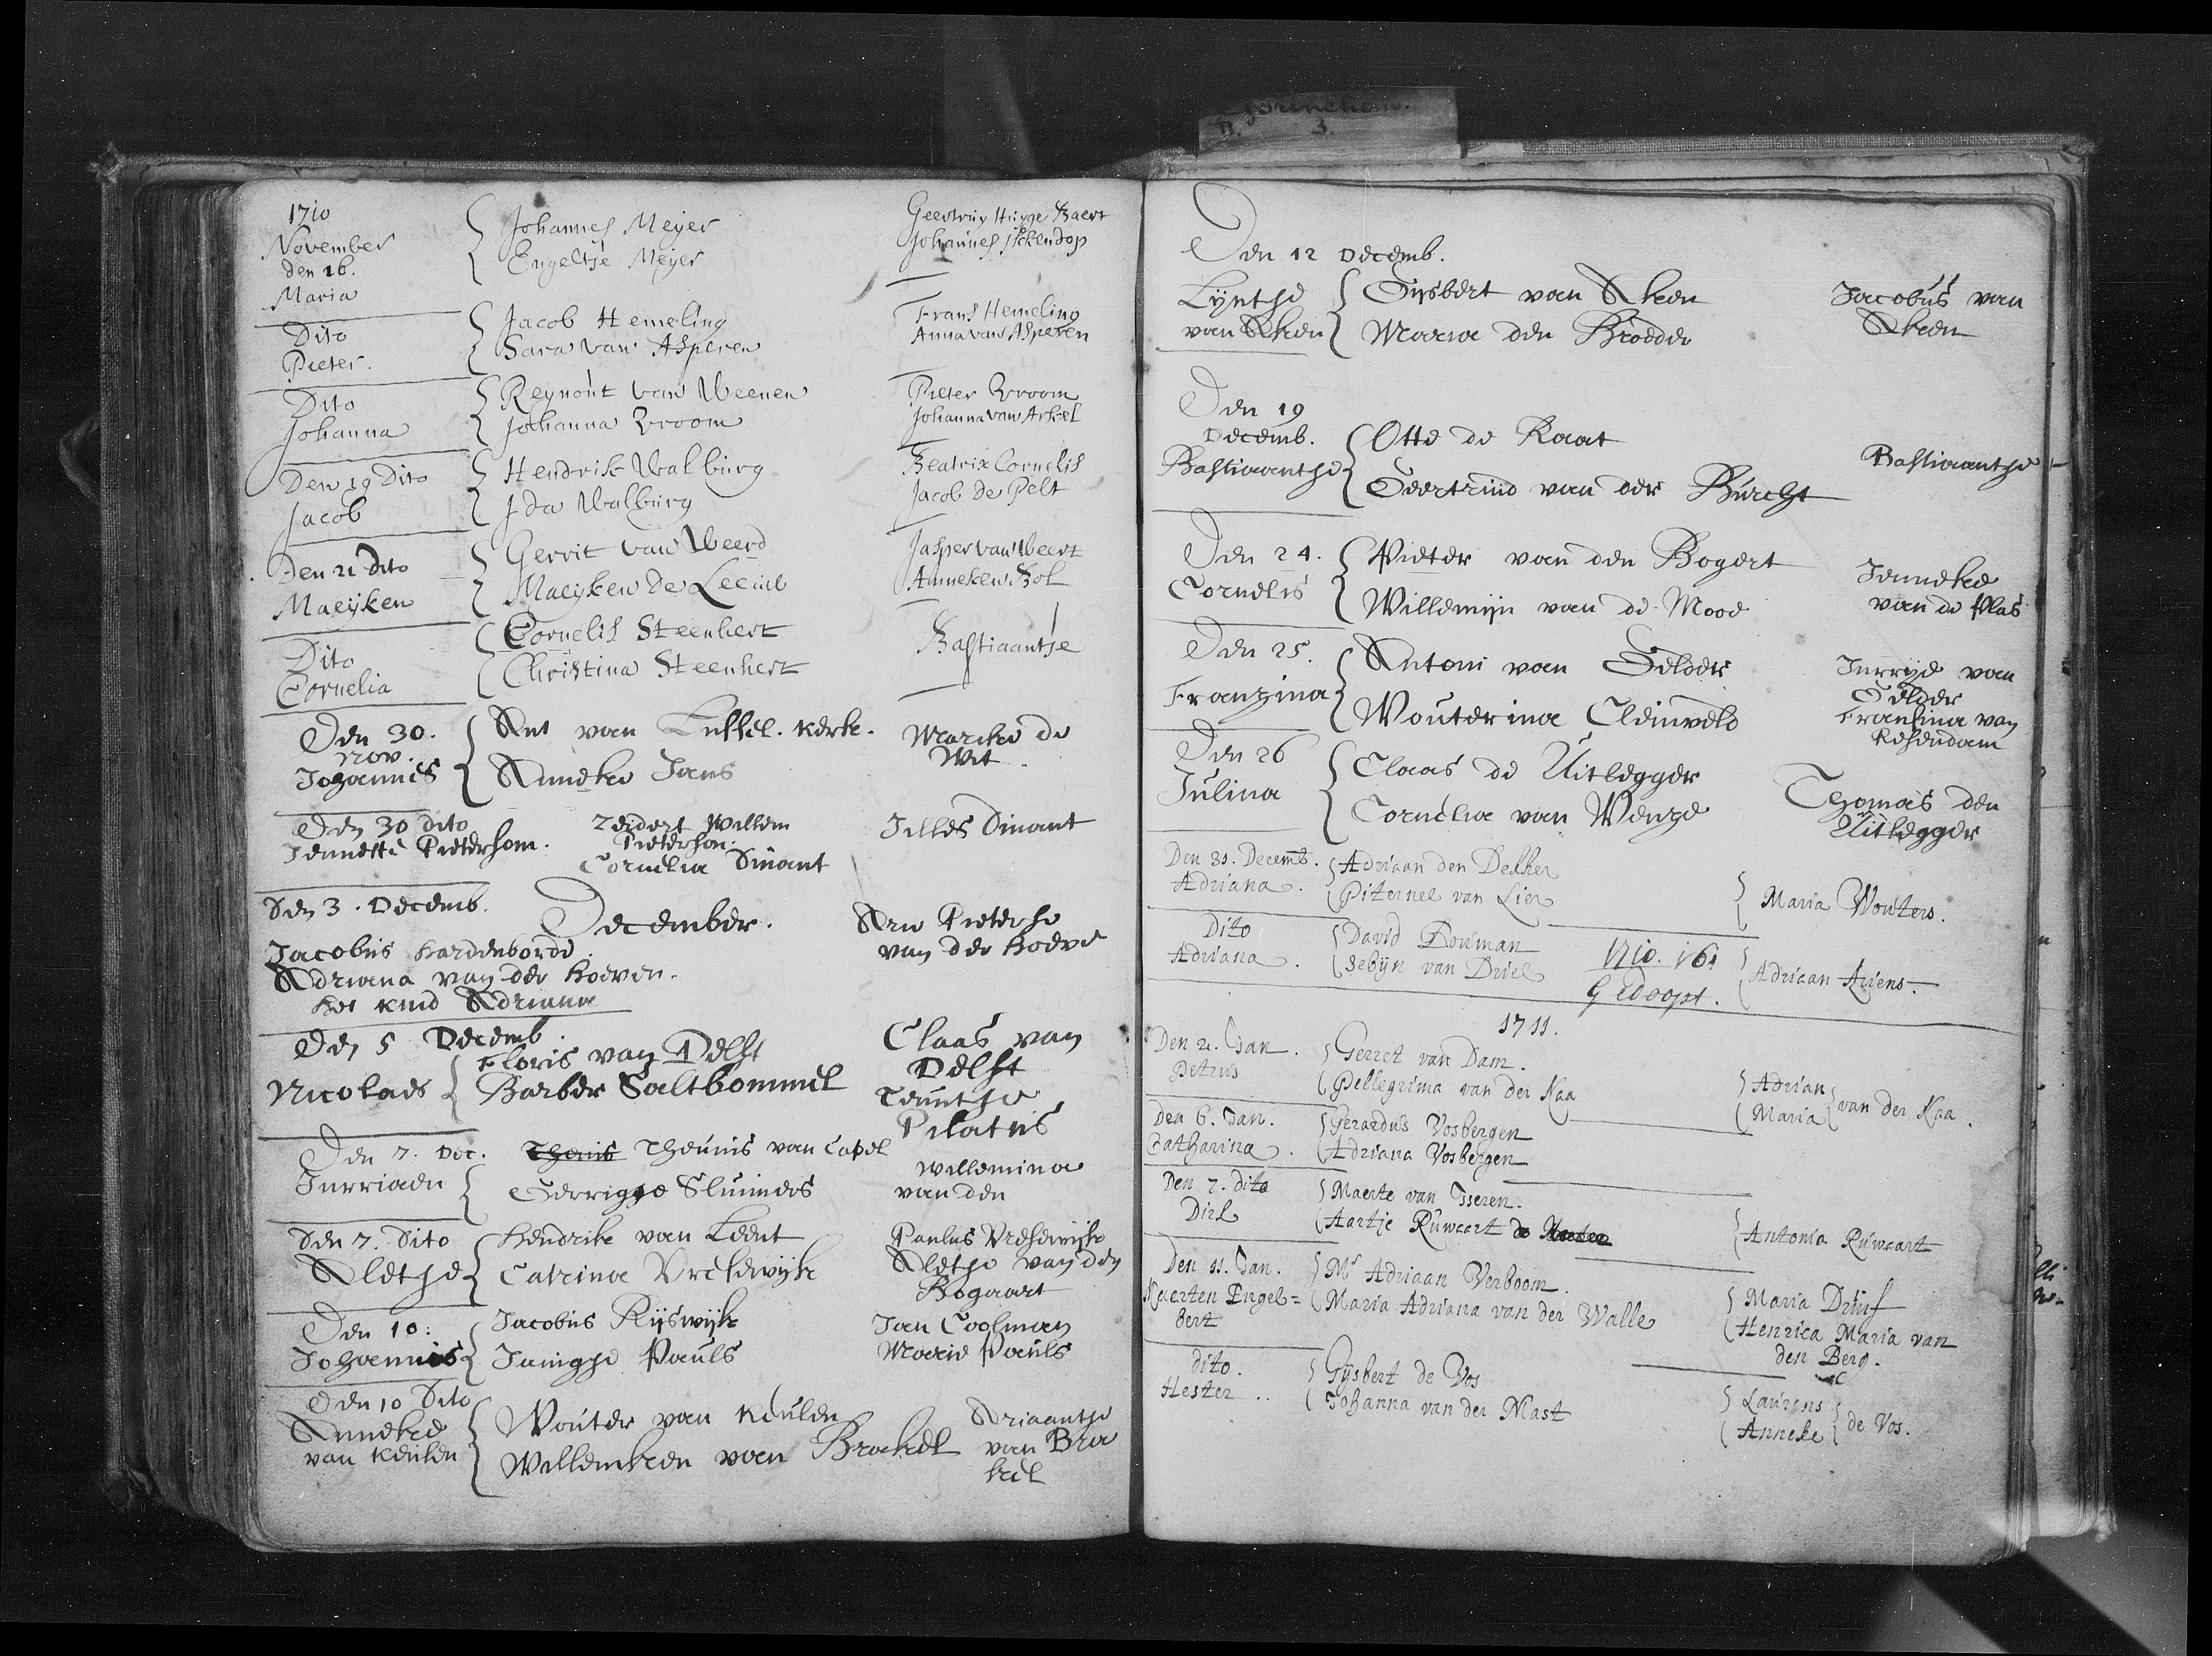 Gorinchem.
3.
1710
November
den 16.
Maria
Johannes Meyer
Engeltje Meyer
Geertruy Huyge Baert
Johannes
Dito
Pieter.
Jacob Hemeling
Sara van Asperen
Frans Hemeling
Anna van Asperen
Dito
Johanna
Reynout van Weenen
Johanna Vroom
Pieter Vroom
Johanna van Arkel
Den 19 Dito
Jacob
Hendrik Walburg
Ida Walburg
Beatrix Cornelis
Jacob de Pelt
Den 21 Dito
Maeyken
Gerrit van Weerd
Maeyken de Leeuw
Jasper van Weert
Anneken Bol
Dito
Cornelia
Cornelis Steenhert
Christina Steenhert
Bastiaantje
Den 30.
Nov.
Johannis
Ant van Leffel. kerk.
Anneke Jans
Marike de
Wit.
Den 30 dito
Jennette Pietersom.
Willem
Pieterson.
Cornelia Dinant
Jilles Dinant
Den 3. Decemb.
December.
Jacobus Hardenborde
Adriana van der Hoeven.
het kind Adriana
Arie Pieterse
van der Hoeve
Den 5 Decemb.
Nicolaes
Floris van Delft
Barber Saltbommel
Claas van
Delft
Teuntje
Pilatus
Den 7. Dec.
Jurriaen
Theunis van Capel
Gerrigje Sluimers
Willemina
van den
Den 7. Dito
Aletje
Hendrik van Leent
Catrina Vreeswijk
Paulus Vreeswijk
Aletje van den
Bogaart
Den 10:
Johannis
Jacobus Rijswijk
Janigje Pauls
Jan Coolman
Marie Pauls
Den 10 Dito
Anneke
van Keulen
Wouter van Keulen
Willemken van Brakel
Ariaantje
van Bra
kel
Den 12 Decemb.
Lijntje
van Aken
Gijsbert van Aken
Maria den Brodder
Jacobus van
Aken
Den 19
Decemb.
Bastiaantje
Otte de Raat
Geertruid van der Burcht
Bastiaantje
Den 24.
Cornelis
Pieter van den Bogert
Willemijn van de Mooe
Jenneke
van de Plas
Den 25.
Franzina
Antoni van Gelder
Wouterina Cleinveld
Jurrije van
Gelder
Fransina van
Resendam
Den 26
Julina
Claas de Uitlegger
Cornelia van Wenze
Thomas den
Uitlegger
Den 31. Decemb.
Adriana.
Adriaan den Dekker
Piternel van Lier
Maria Wouters.
Dito
Adriana.
David Bouman
Sebijn van Driel
1710. 161
Gedoopt.
Adriaan Ariens.
1711.
Den 2. Jan.
Petrus
Gerret van Dam.
Pellegrima van der Kaa
Adrian
Maria
van der Kaa.
Den 6. Jan.
Catharina.
Gerardus Vosbergen
Adriana Vosbergen
Den 7. dito
Dirk
Maerte van Isseren.
Aartje Ruwaart
Antonia Ruwaart
Den 11. Jan.
Maerten Engel=
bert
Mr Adriaan Verboom.
Maria Adriana van der Walle
Maria Druif
Henrica Maria van
den Berg.
dito.
Hester..
Gijsbert de Vos
Johanna van der Mast
Laurens
Anneke
de Vos.